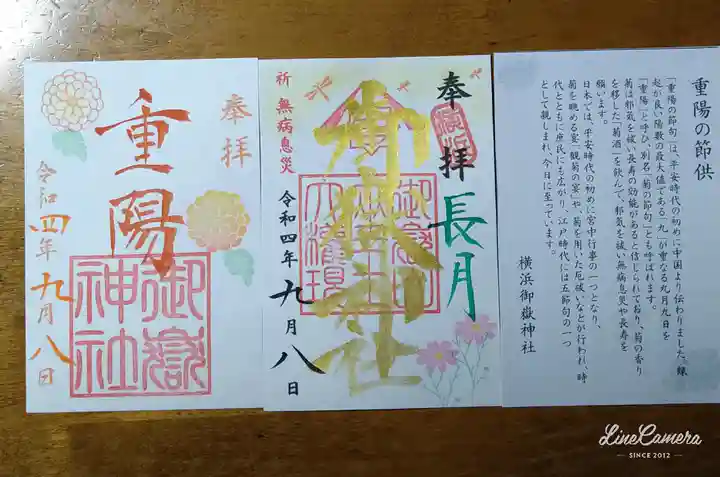 重陽の節供
「重陽の節句」は、平安時代の初めに中国より伝わりました。縁
起が良い陽数の最大値である「九」が重なる九月九日を
「重陽」と呼び、別名「菊の節句」とも呼ばれます。
菊は邪気を祓い長寿の効能があると信じられており、菊の香り
を移した「菊酒」を飲んで、邪気を祓い無病息災や長寿を
願います。
日本では、平安時代の初めに宮中行事の一つとなり、
菊を眺める宴「観菊の宴」や、菊を用いた厄祓いなどが行われ、時
代とともに庶民にも広がり、江戸時代には五節句の一つ
として親しまれ、今日に至っています。
横浜御嶽神社
奉拝
長月
御嶽神社
祈 無病息災
令和四年九月八日
奉拝
重陽
御嶽
神社
令和四年九月八日
LineCamera
SINCE 2012